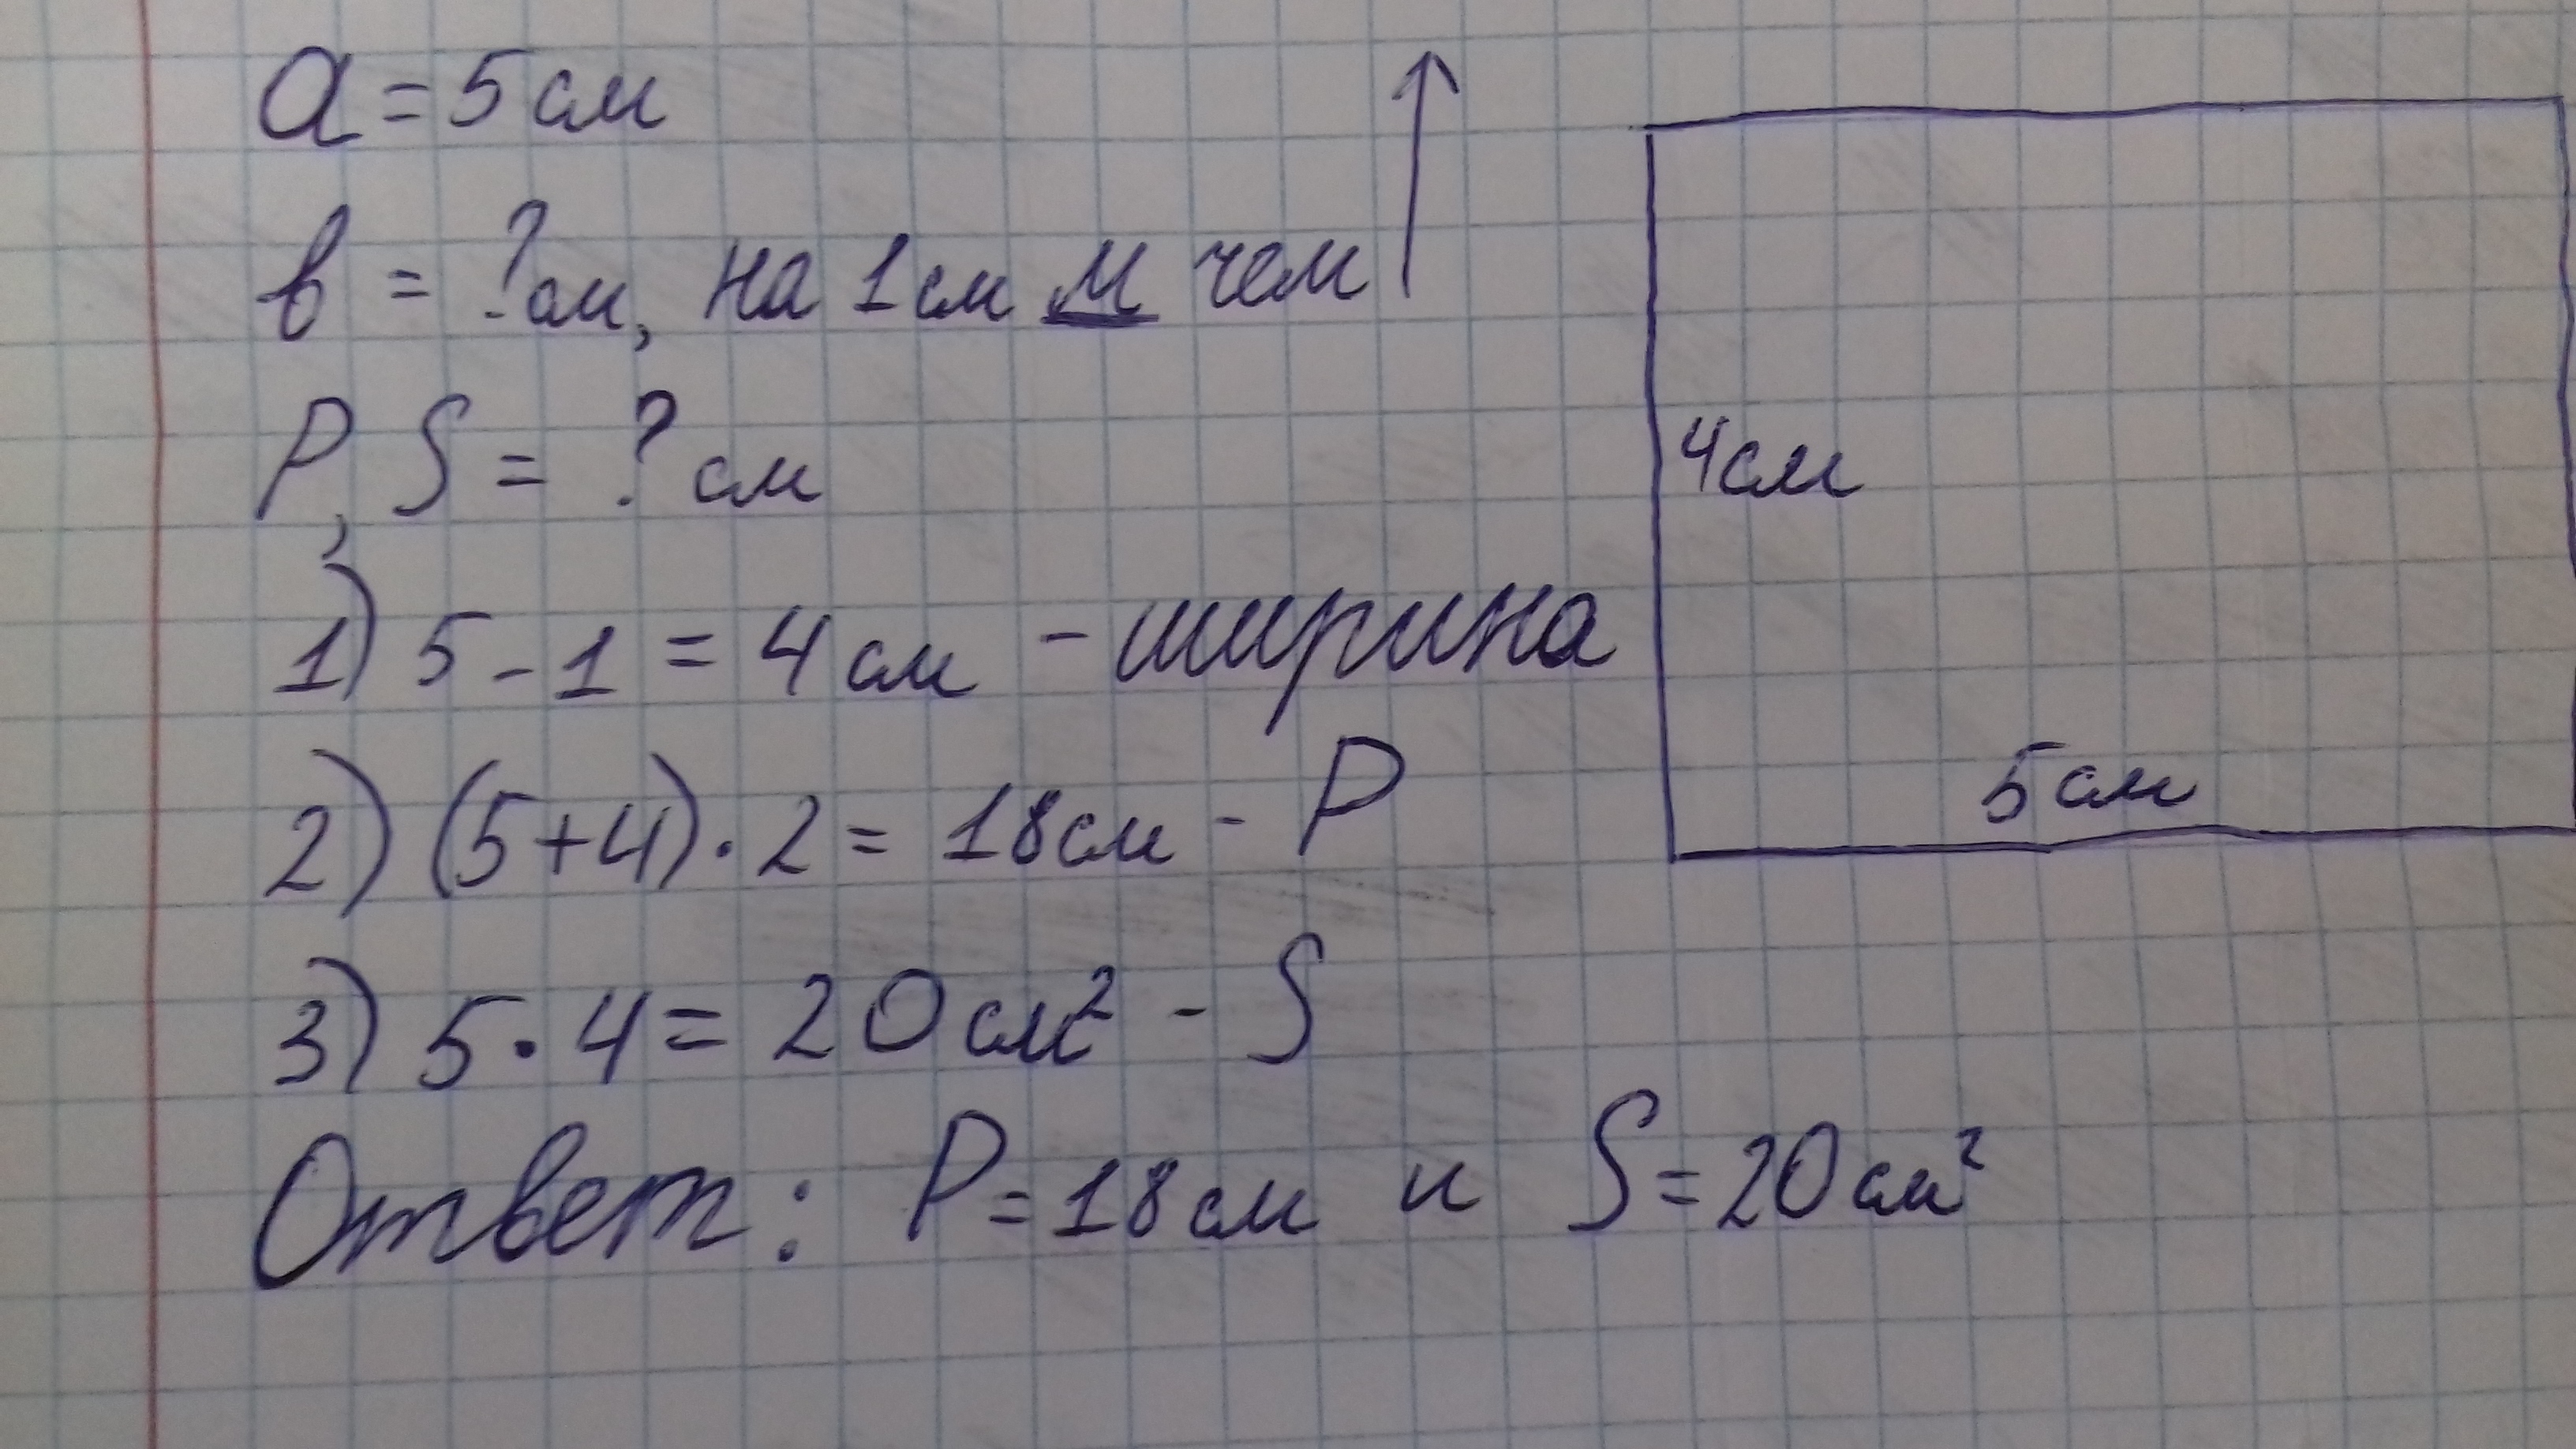 a = 5 см
в = ? см, на 1 см м чем ↑
P, S = ? см
1) 5 - 1 = 4 см - ширина
2) (5+4) · 2 = 18 см - P
3) 5 · 4 = 20 см² - S
Ответ: P = 18 см и S = 20 см²
4 см
5 см